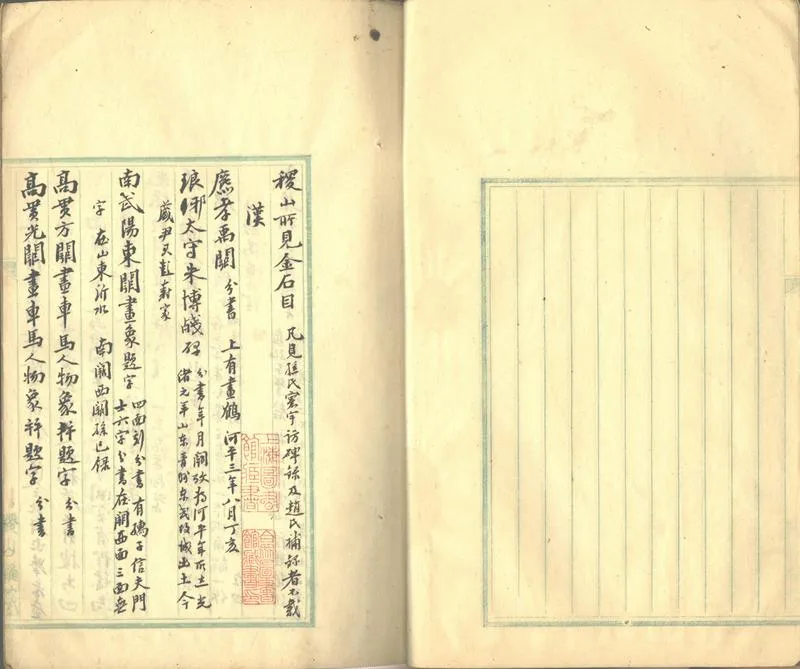 稷山所見金石目　凡見孫氏寰宇訪碑錄及趙氏補錄者不載
漢
麃孝禹闕　分書　上有畫鶴　河平三年八月丁亥
琅邪太守朱博殘碑　分書年月闕攷為河平年所立光
緒元年山東青州東武故城出土今
藏尹氏彭壽家
南武陽東闕畫象題字　四面刻分書有孺子信夫門
士六字分書在闕西面三面無
字　在山東沂水　南闕西闕孫已錄
高貫方闕畫車馬人物象幷題字　分書
高貫光闕畫車馬人物象幷題字　分書